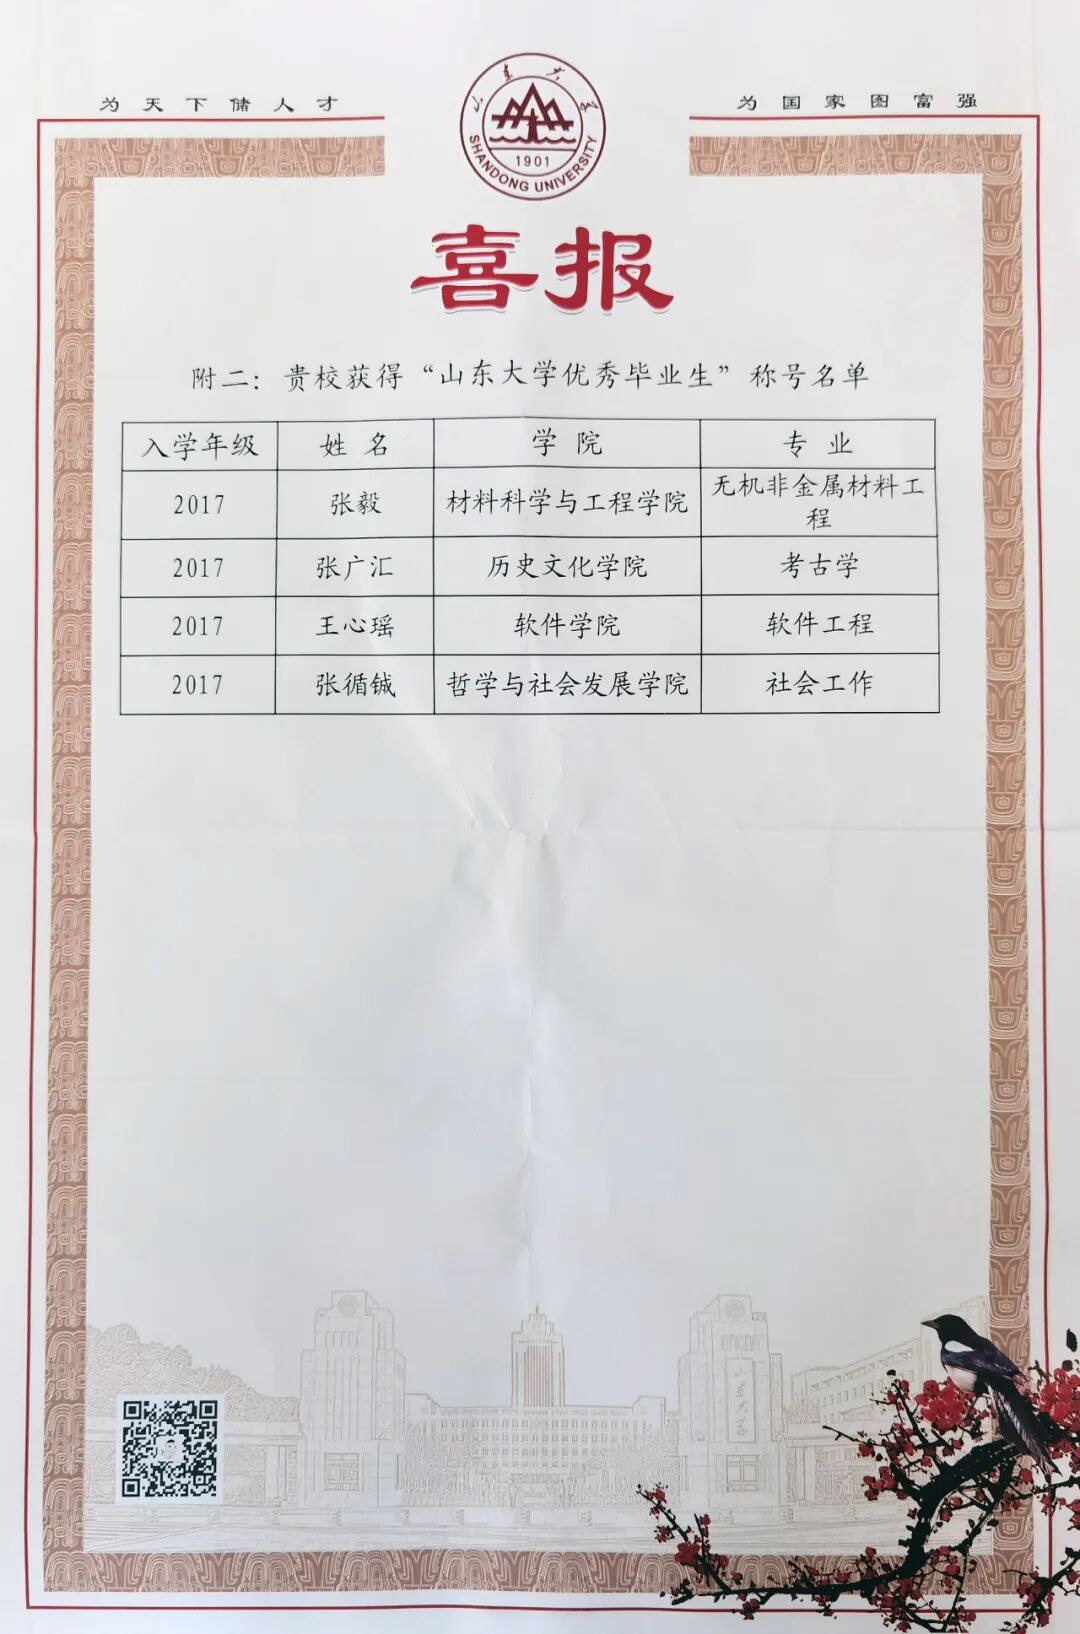 为天下储人才
为国家图富强
山东大学
1901
SHANDONG UNIVERSITY
喜报
附二：贵校获得“山东大学优秀毕业生”称号名单
入学年级 姓名 学院 专业
2017 张毅 材料科学与工程学院 无机非金属材料工
程
2017 张广汇 历史文化学院 考古学
2017 王心瑶 软件学院 软件工程
2017 张循铖 哲学与社会发展学院 社会工作
山东大学